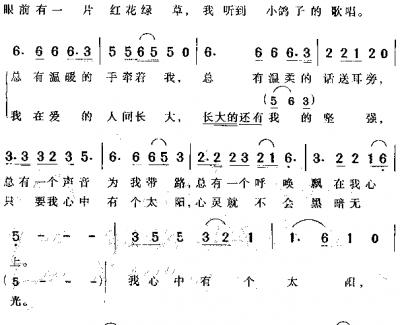 眼前有一片红花绿草，我听到小鸽子的歌唱。
6. 6 6 6.3 5 5 6 5 5 0 6. 6 6 6.3 2 2 1 2 0
总有温暖的手牵着我，总有温柔的话送耳旁，
(5 6 3)
我在爱的人间长大，长大的还有我的坚强，
3.3 3 3 2 3 5. 6. 6 6 5 3 2.2 2 3 2 1 6. 3. 2 2 1 6
总有一个声音为我带路，总有一个呼唤飘在我心
只要我心中有个太阳，心灵就不会黑暗无
5 - - - 3 5 5 3 2 1 1. 6 1 0
上。
(5 - - - 我心中有个太阳，
光。